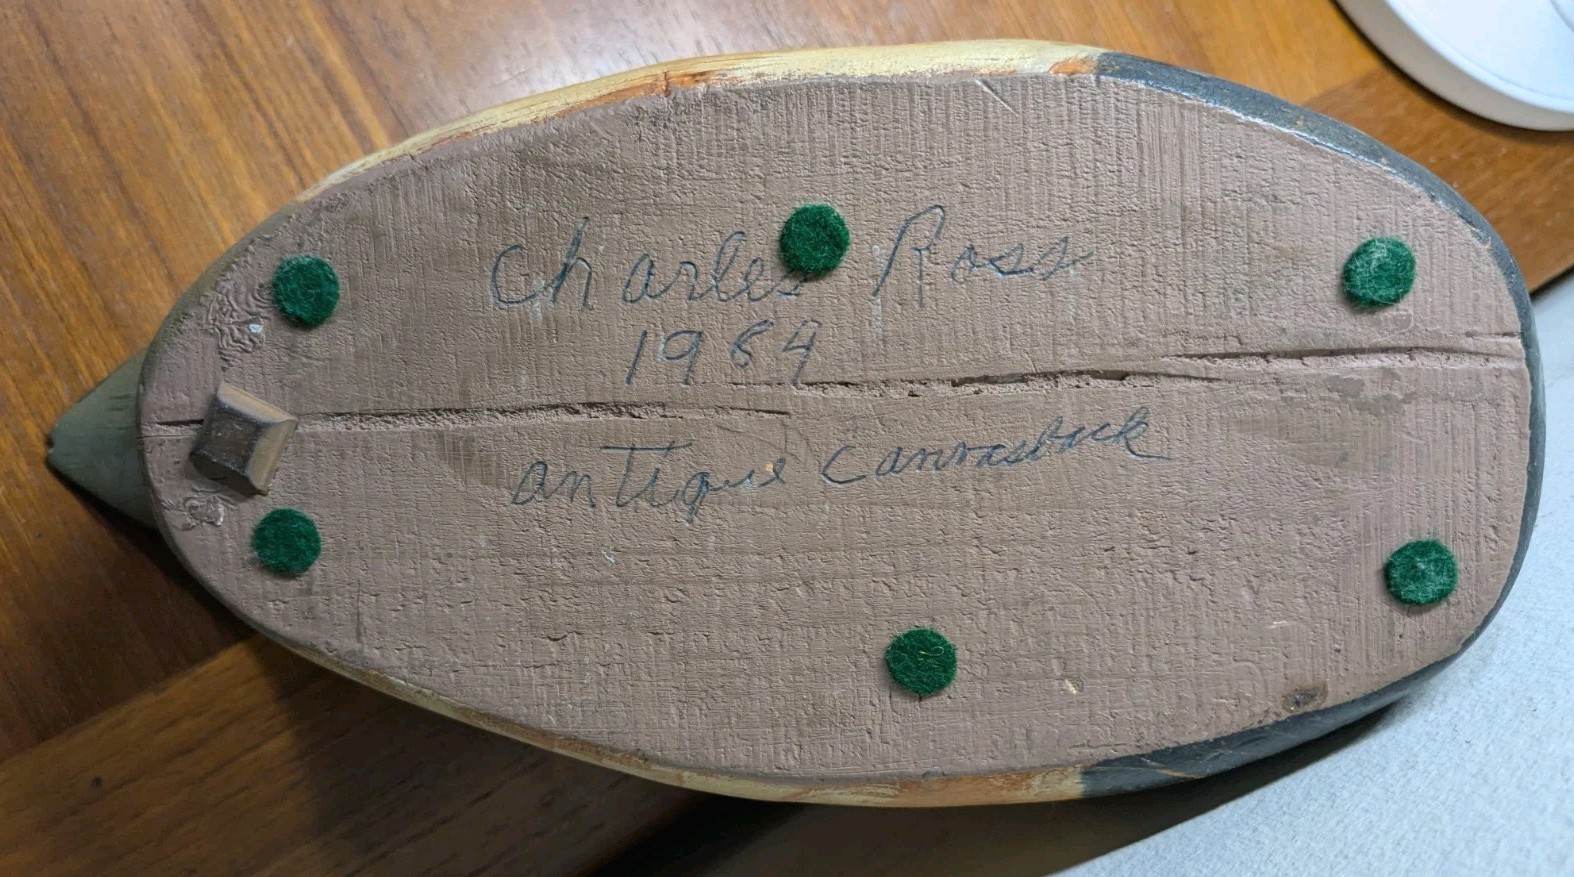 Charles Ross
1984
antique canvasback